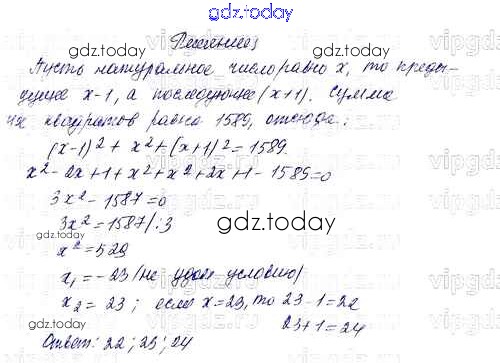 gdz.today
Решение:
gdz.today
Пусть натуральное число равно x, то преды-
дущее x-1, а последующее (x+1). Сумма
их квадратов равна 1589, отсюда:
(x-1)² + x² + (x+1)² = 1589
x² - 2x + 1 + x² + x² + 2x + 1 - 1589 = 0
3x² - 1587 = 0
3x² = 1587 /:3
gdz.today
x² = 529
x₁ = -23 /не удов условию/
x₂ = 23; если x = 23, то 23 - 1 = 22
gdz.today
23 + 1 = 24
Ответ: 22; 23; 24
gdz.today